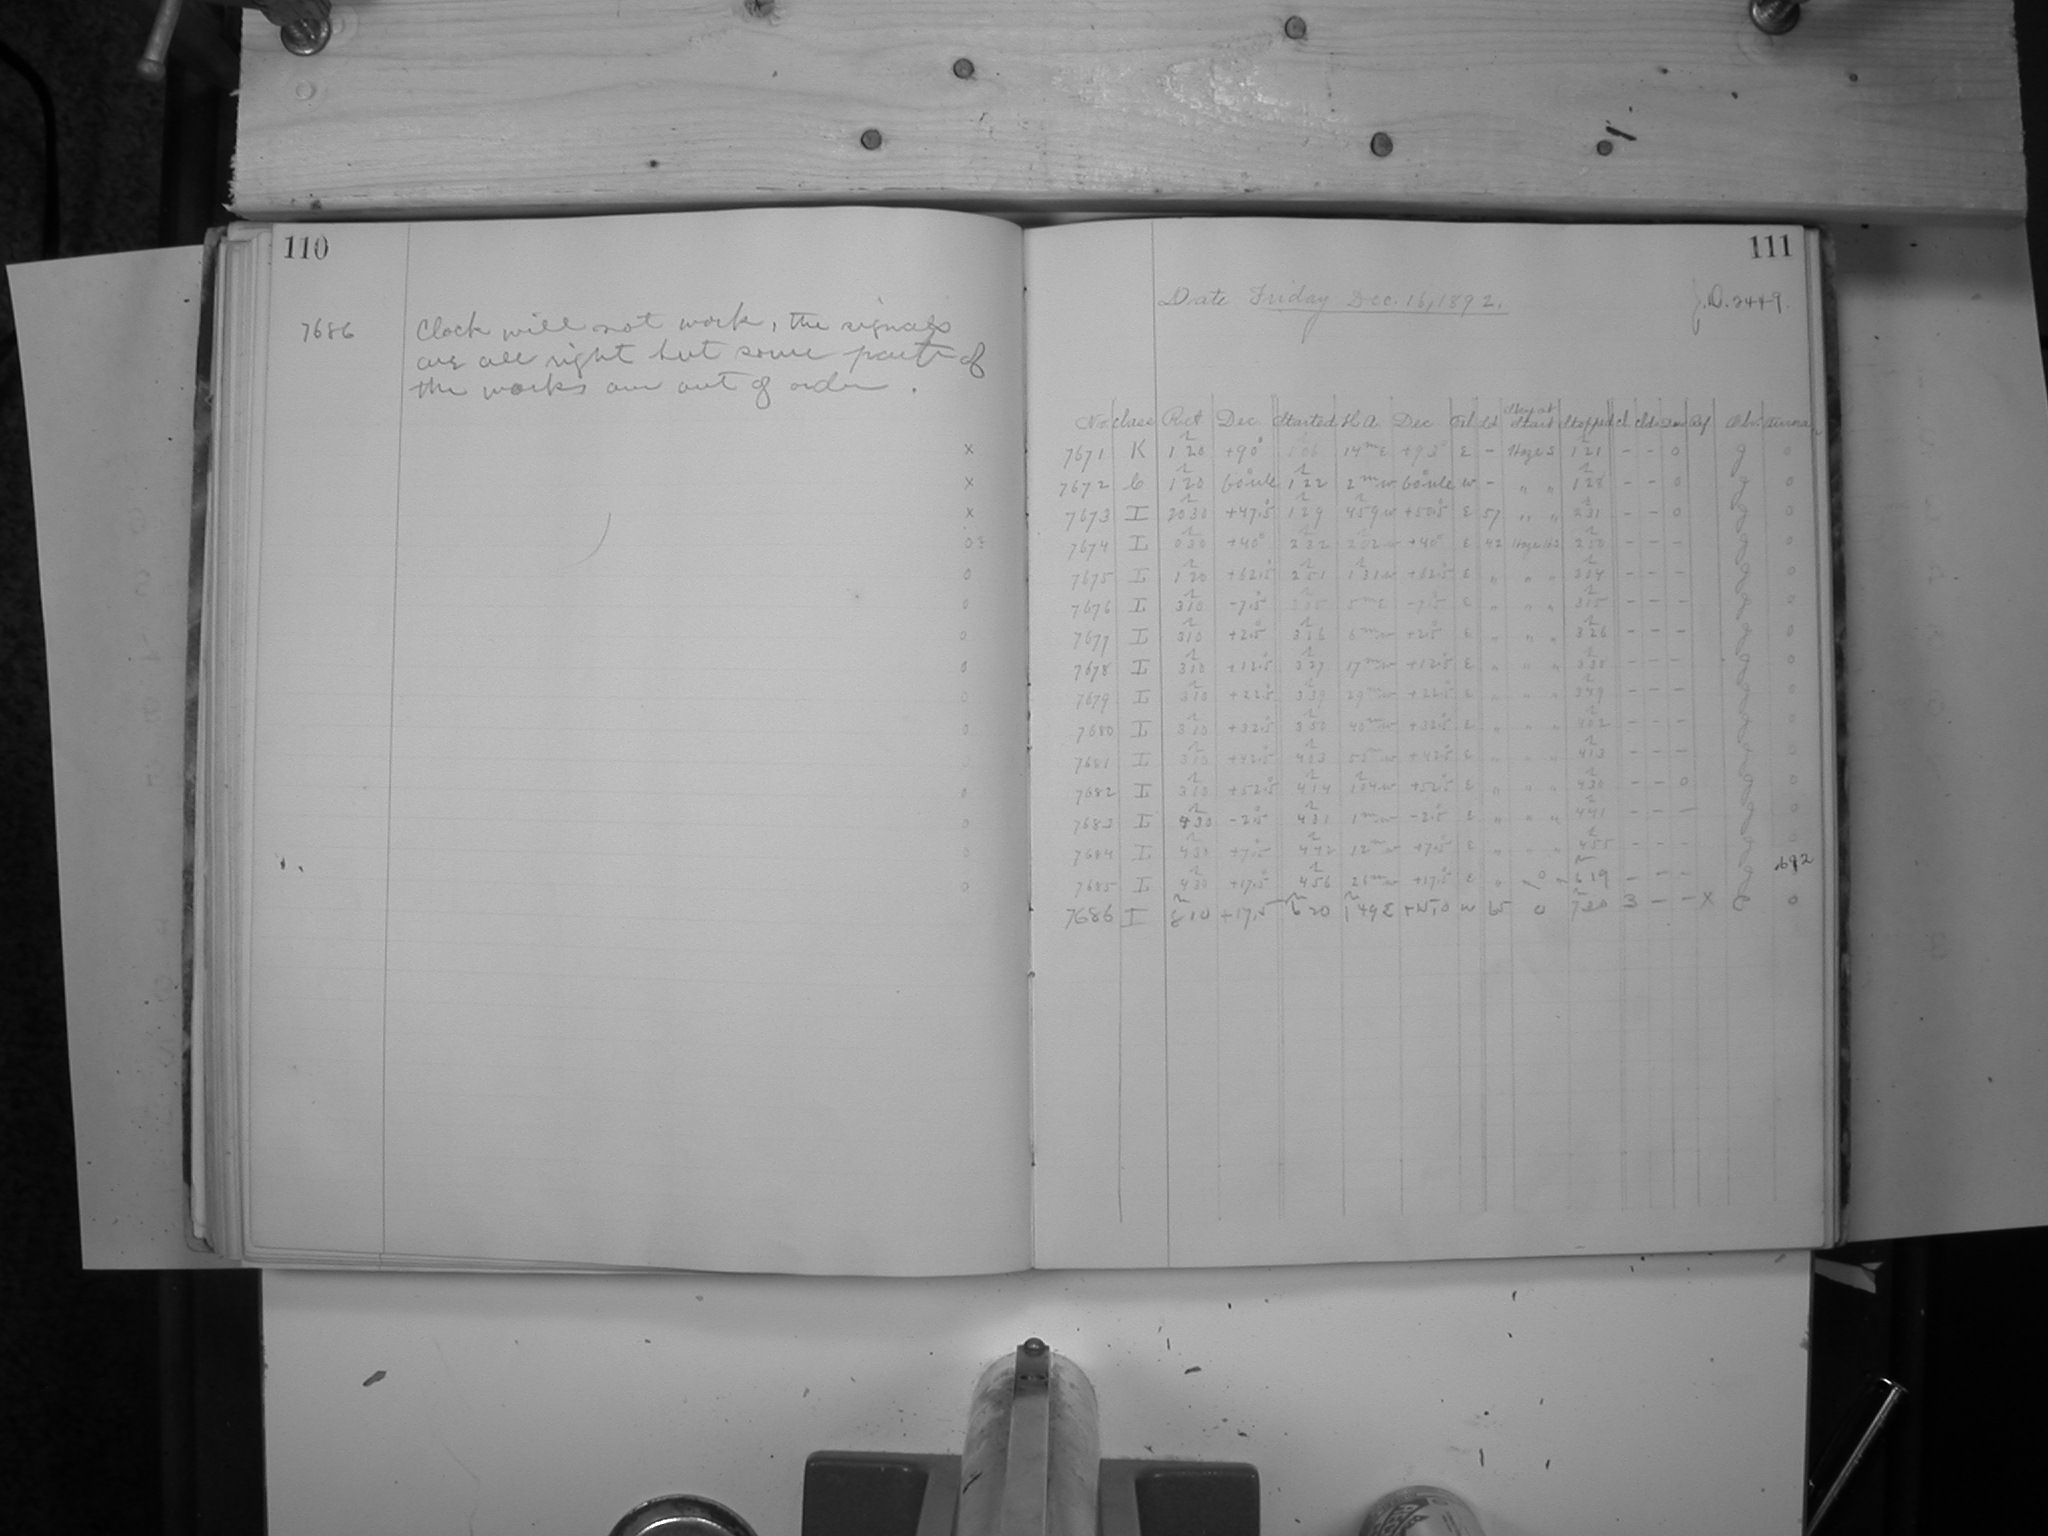 110
7686 Clock will not work, the signals
are all right but some parts of
the works are out of order.
111
Date Friday Dec. 16, 1892.
J.D. 2449.
No. Class R.A. Dec. Started H.A. Dec Tel Sky at Start Stopped Cl. Obs.
7671 K 1 20 +90° 14m E E - Haze S 121 - - 0 g 0
7672 1 20 Pole 122 2m w Pole w - " " 128 - - 0 g 0
7673 I 2030 +47.5 129 459w +50.5 E 57 " " 231 - - 0 g 0
7674 I 030 +40° 232 202w +40° E 42 250 - - - g 0
7675 I 120 +62.5 251 131w +62.5 E " " " 304 - - - g 0
7676 I 310 -7.5 305 5m E -7.5 E " " " 315 - - - g 0
7677 I 310 +2.5 316 6m w +2.5 E " " " 326 - - - g 0
7678 I 310 +12.5 327 17m w +12.5 E " " " 338 - - - g 0
7679 I 310 +22.5 339 29m w +22.5 E " " " 349 - - - g 0
7680 I 310 +32.5 350 40m w +32.5 E " " " 402 - - - g 0
7681 I 310 +42.5 403 53m w +42.5 E " " " 413 - - - g 0
7682 I 310 +52.5 414 104w +52.5 E " " " 430 - - 0 g 0
7683 I 430 -2.5 431 1m w -2.5 E " " " 441 - - - g 0
7684 I 430 +7.5 442 12m w +7.5 E " " " 455 - - - g 0
7685 I 430 +17.5 456 26m w +17.5 E " 0 619 - - - g .692
7686 I 810 +17.5 620 149E w 65 0 720 3 - - X E 0